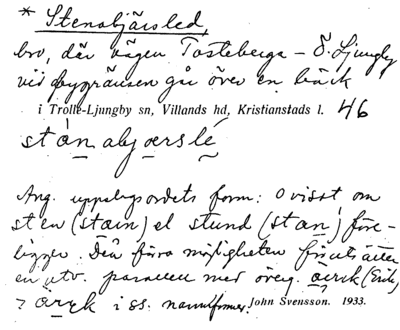 * Stenabjärsled,
bro, där vägen Tosteberga – Ö. Ljungby
vid bygränsen går över en bäck
i Trolle-Ljungby sn, Villands hd, Kristianstads l. 46
stànabjærslé
Ang. uppslagsordets form: ovisst om
sten (stain) el stund (stan) före-
ligger. Den förra möjligheten förutsätter
en utv. parallell med övrig.
i ss. namnformer. John Svensson. 1933.